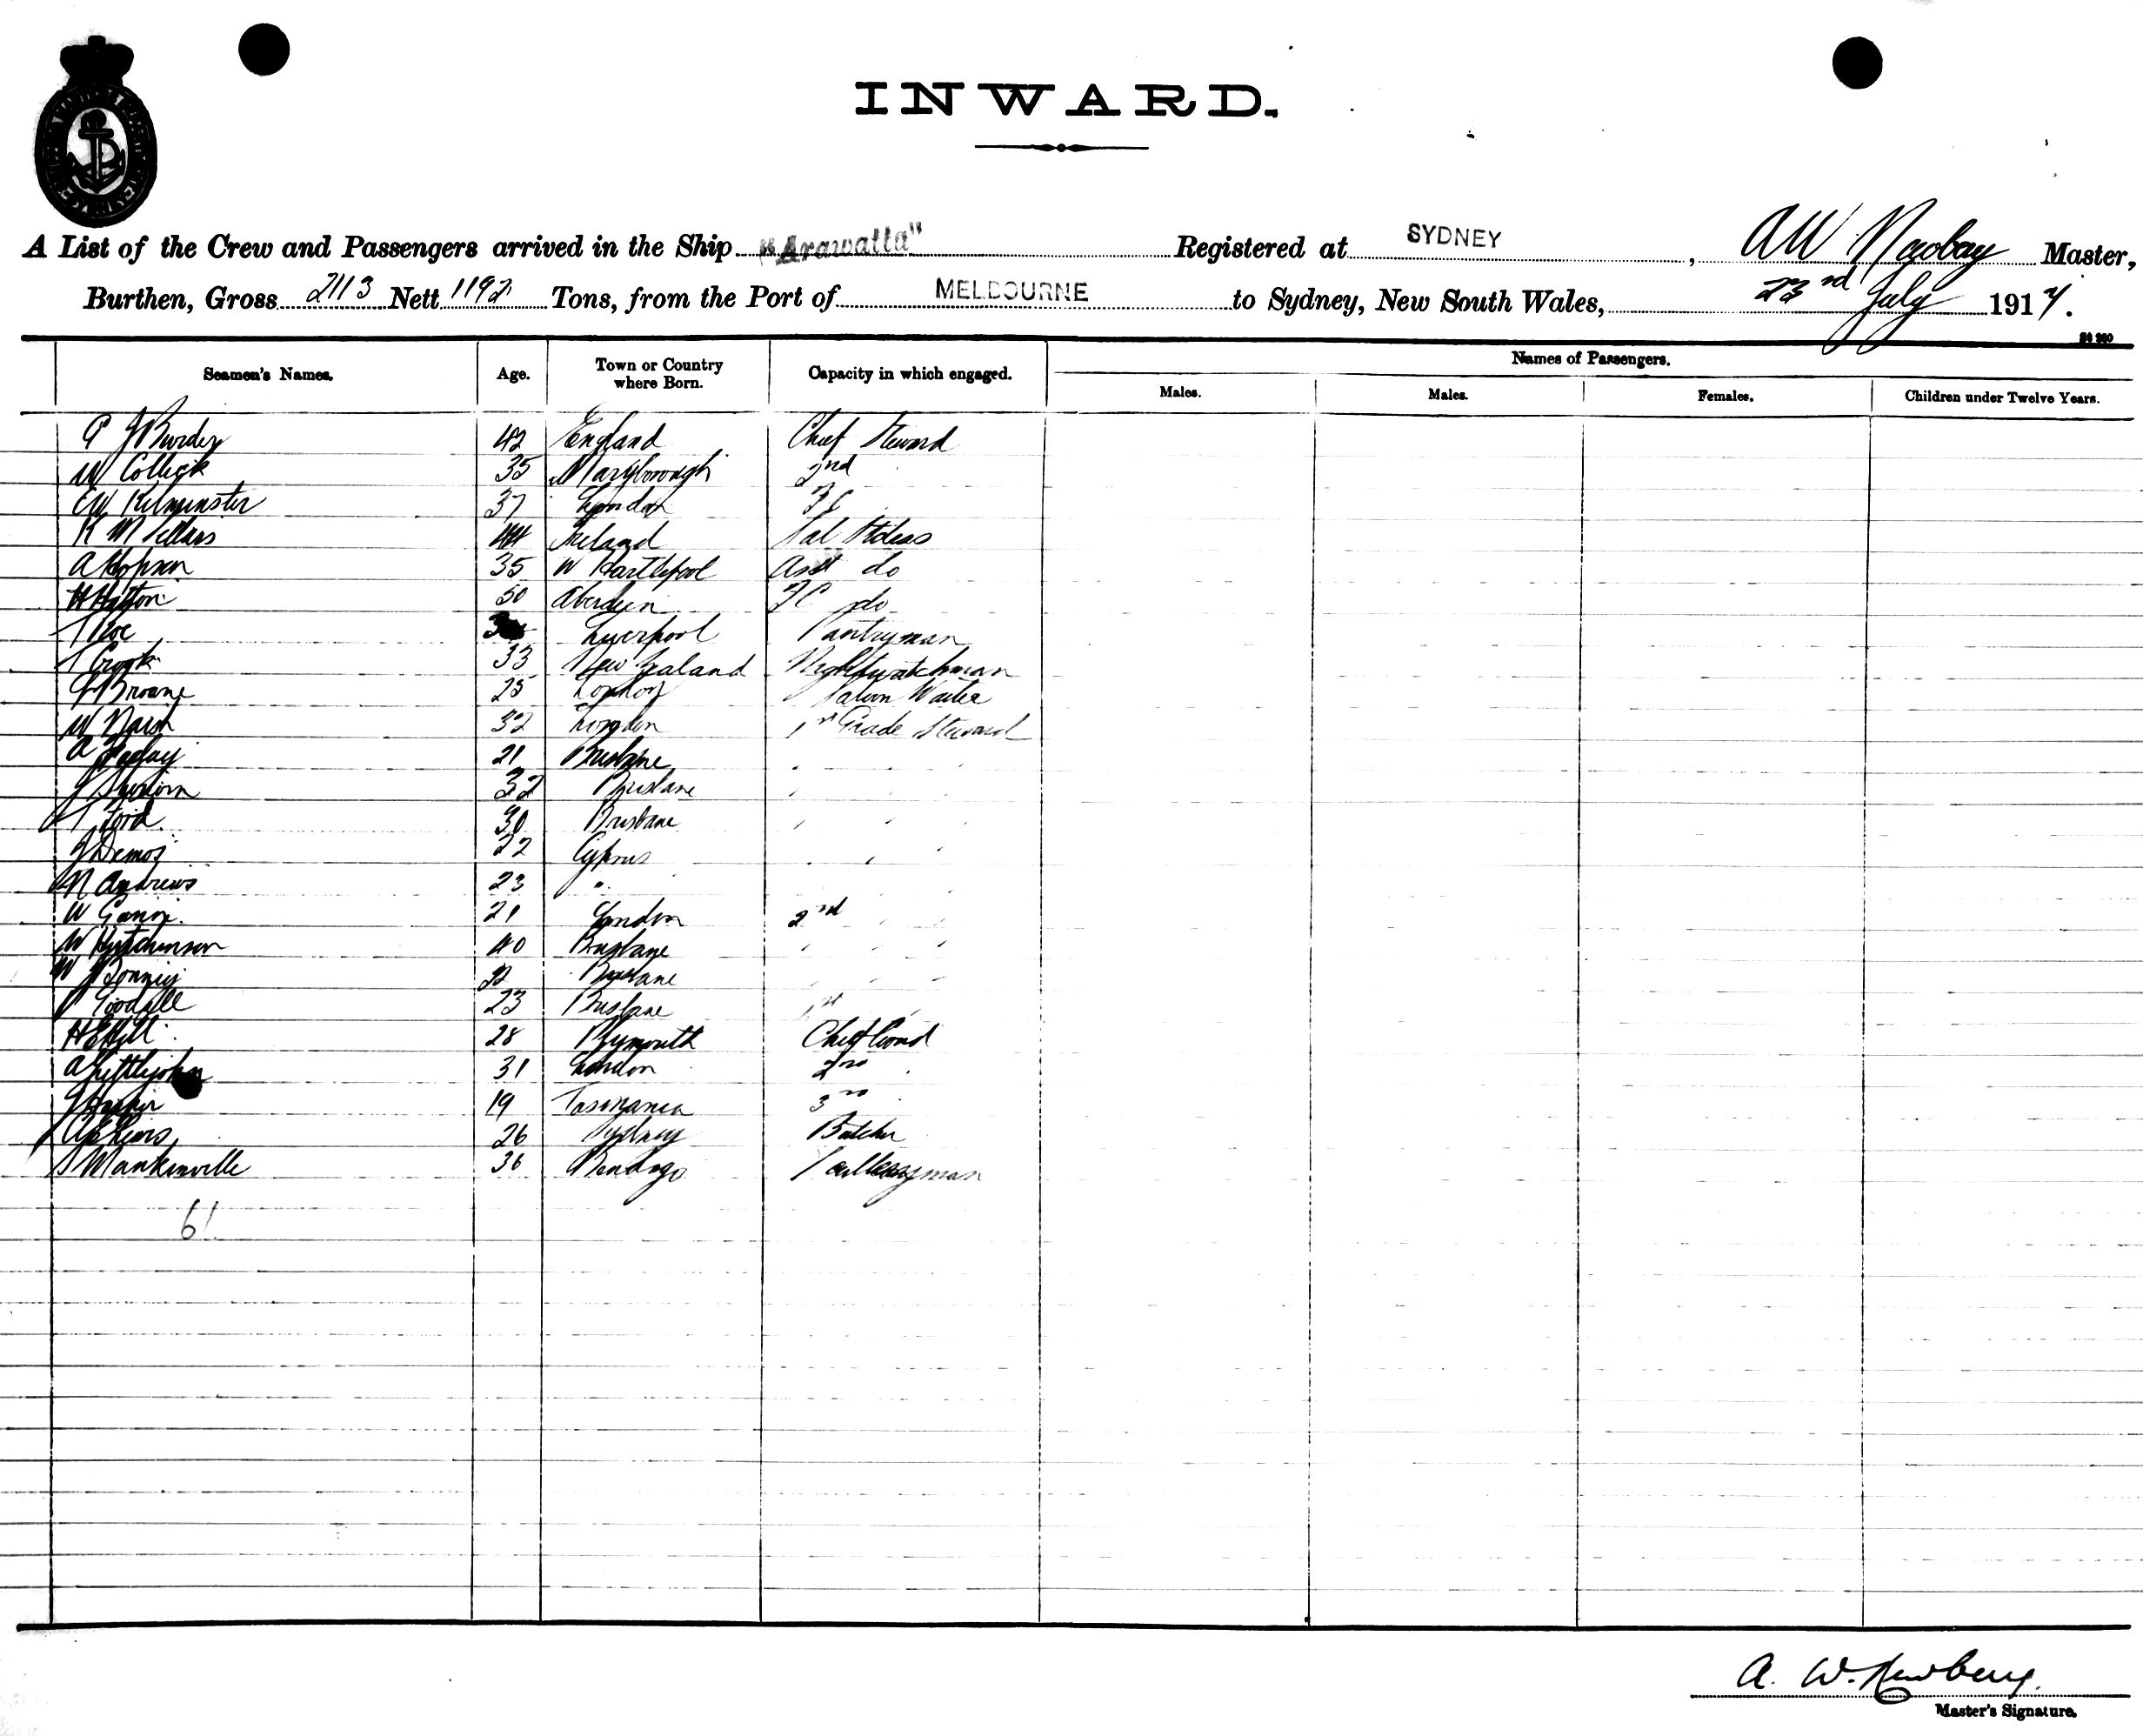 INWARD.
A List of the Crew and Passengers arrived in the Ship "Arawatta" Registered at SYDNEY, A W Master,
Burthen, Gross 2113 Nett 1192 Tons, from the Port of MELBOURNE to Sydney, New South Wales, 23rd July 191
Names of Passengers.
Seamen's Names. Age. Town or Country where Born. Capacity in which engaged. Males. Males. Females. Children under Twelve Years.
42 England Chief Steward
W Collick 35 Maryborough 2nd
Kilminster 37 London
K M Sellars 44 Ireland Sal Stdess
A Hopson 35 W Hartlepool Asst do
H Hatton 50 Aberdeen do
Liverpool Pantryman
T Crook 33 New Zealand Nightwatchman
J Browne 25 London Saloon Waiter
W Nash 32 London 1st Grade Steward
A 21 Brisbane
32 Brisbane
T Ford 30 Brisbane
J Demos 22 Cyprus
N Andrews 23 "
W 21 London 2nd
W Hutchinson 40 Brisbane
W 22 Brisbane
Goodall 23 Brisbane 1st
H E Hill 28 Plymouth Chief Cook
A Littlejohn 31 London 2nd
J Harper 19 Tasmania 3rd
26 Sydney Butcher
Mankinville 36 Bendigo
61
A. W. Newbery.
Master's Signature.